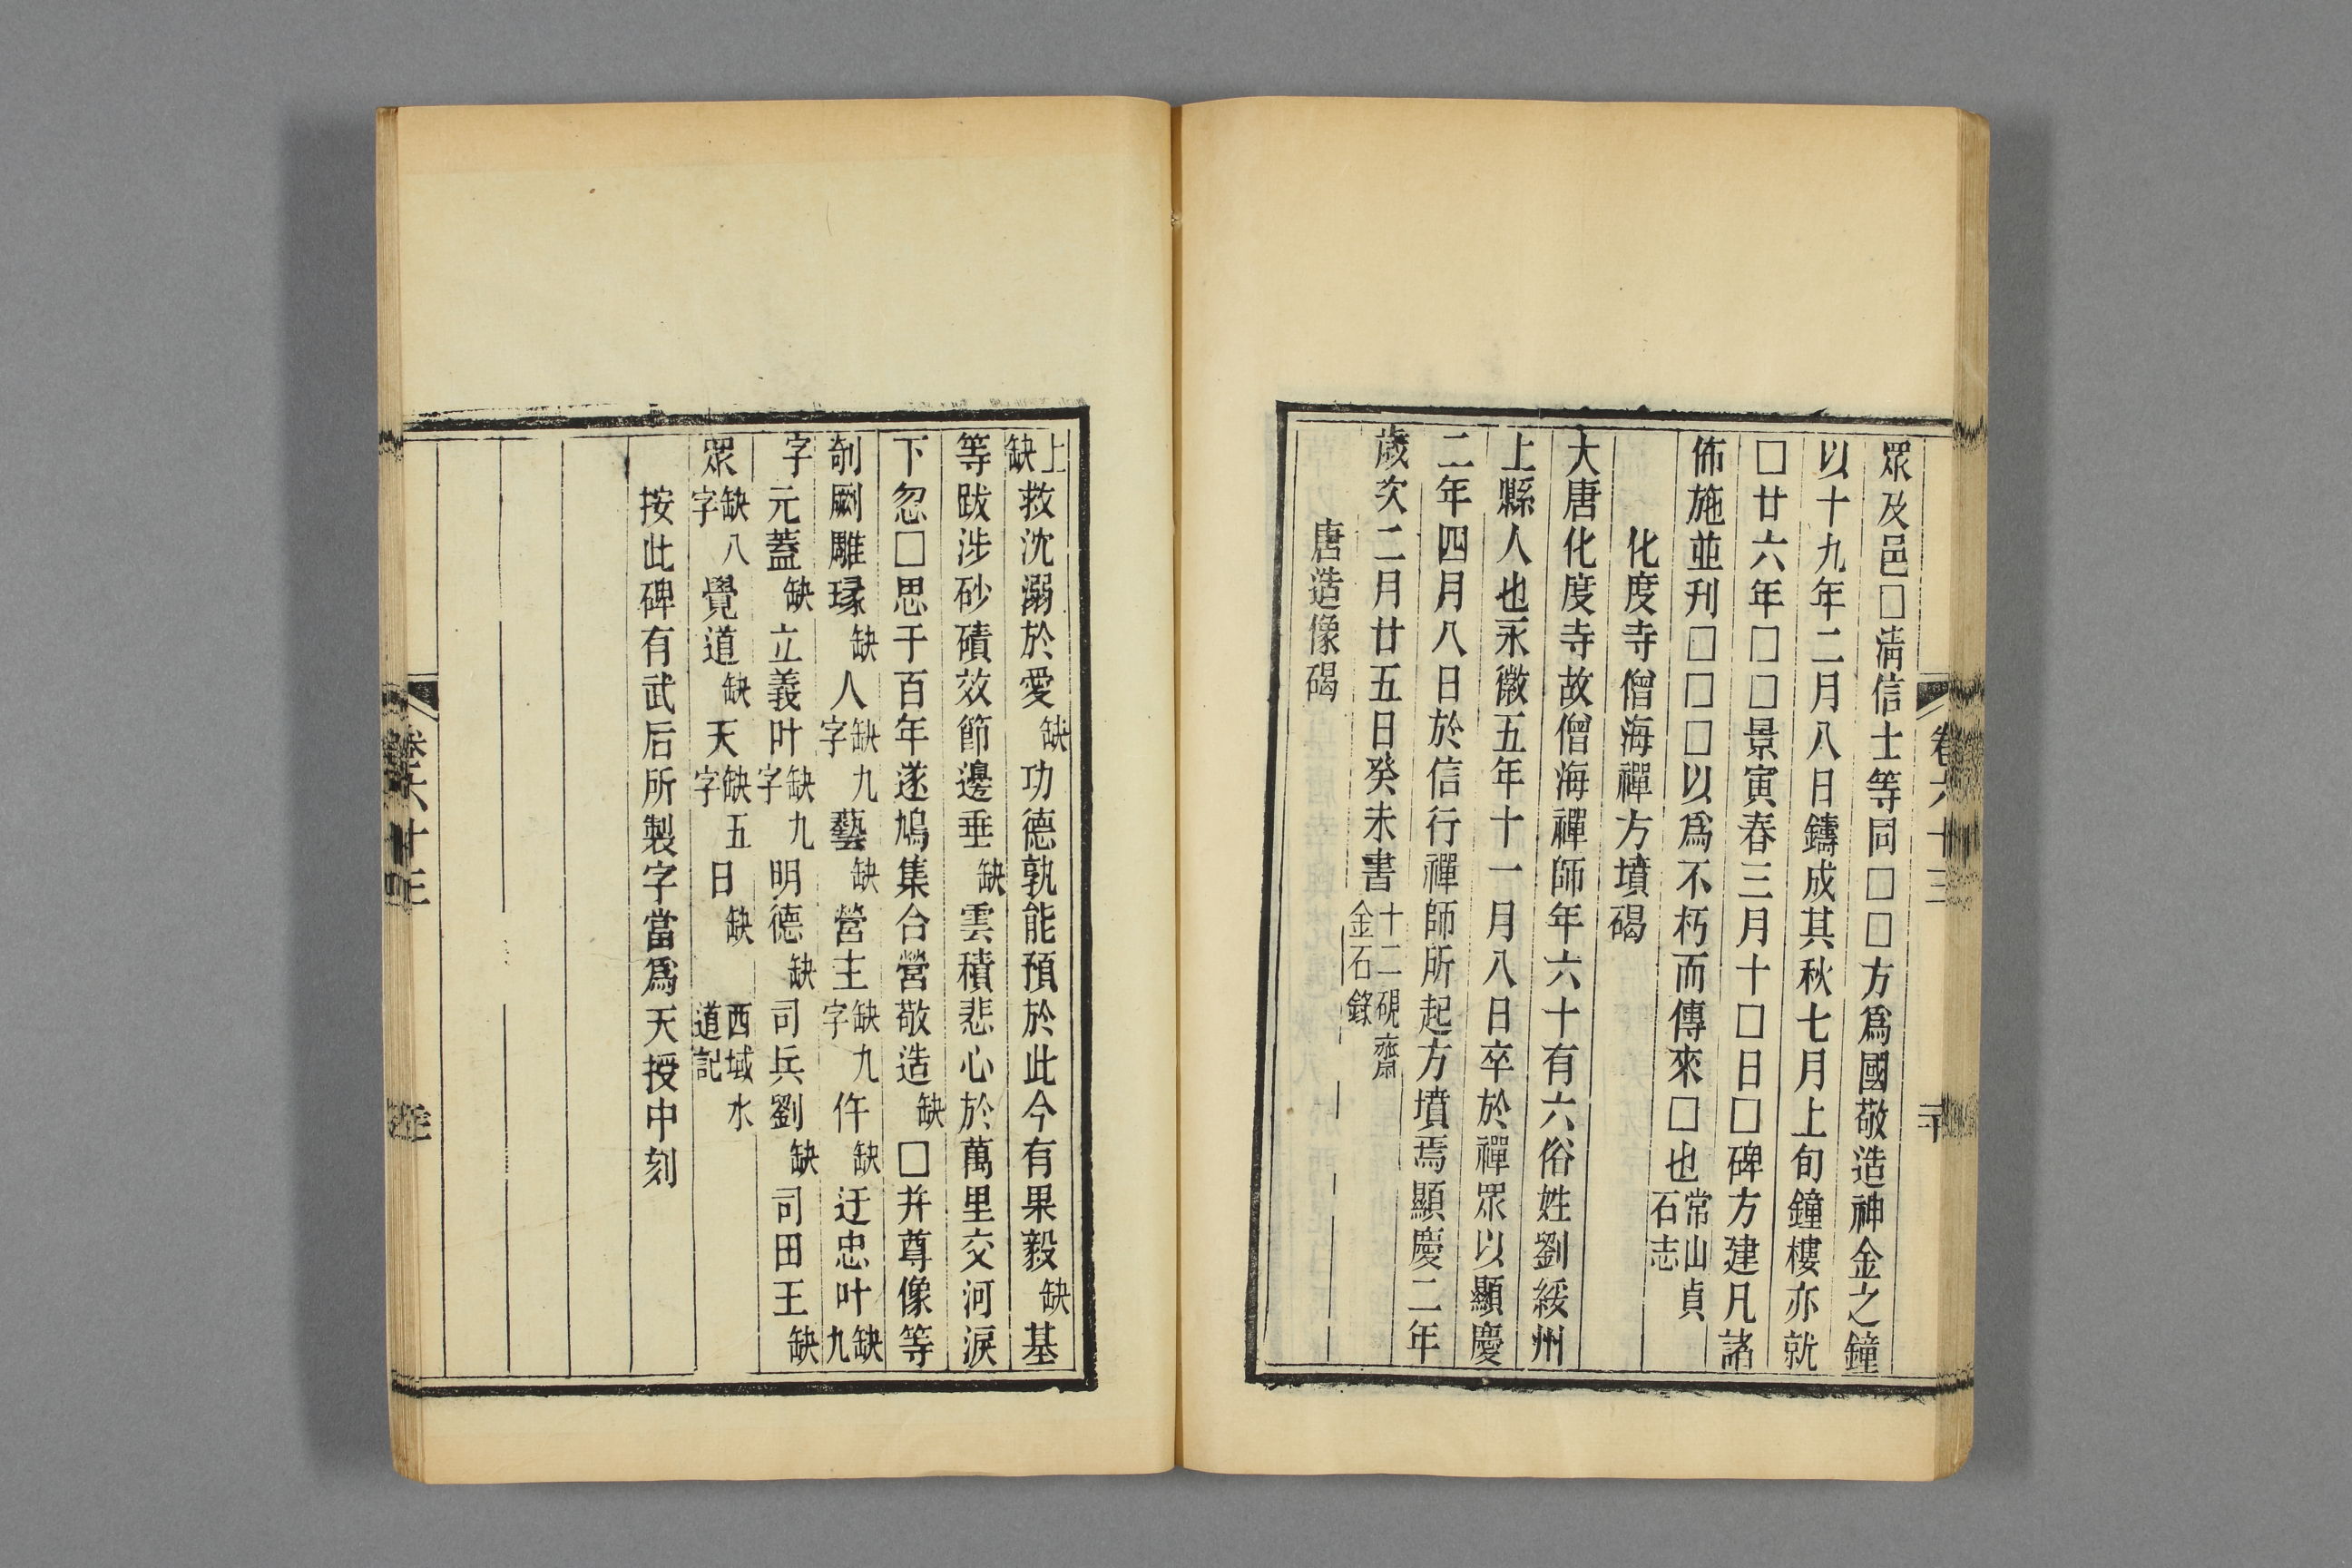 眾及邑□淸信士等同□□方爲國敬造神金之鐘
以十九年二月八日鑄成其秋七月上旬鐘樓亦就
□廿六年□□景寅春三月十□日□碑方建凡諸
佈施並刋□□□以爲不朽而傳來□也常山貞石志
化度寺僧海禪師方墳碣
大唐化度寺故僧海禪師年六十有六俗姓劉綏州
上縣人也永徽五年十一月八日卒於禪眾以顯慶
二年四月八日於信行禪師所起方墳焉顯慶二年
歲次二月廿五日癸未書十二硯齋金石錄
唐造像碣
上缺救沈溺於愛缺功德孰能預於此今有果毅缺基
等跋涉砂磧效節邊垂缺雲積悲心於萬里交河淚
下忽□思于百年遂鳩集合營敬造缺□幷尊像等
剞劂雕瑑缺人缺九字藝缺營主缺九字仵缺迂忠叶缺九
字元蓋缺立義叶缺九字明德缺司兵劉缺司田王缺
眾缺八字覺道缺天缺五字日缺西域水道記
按此碑有武后所製字當爲天授中刻
卷六十三